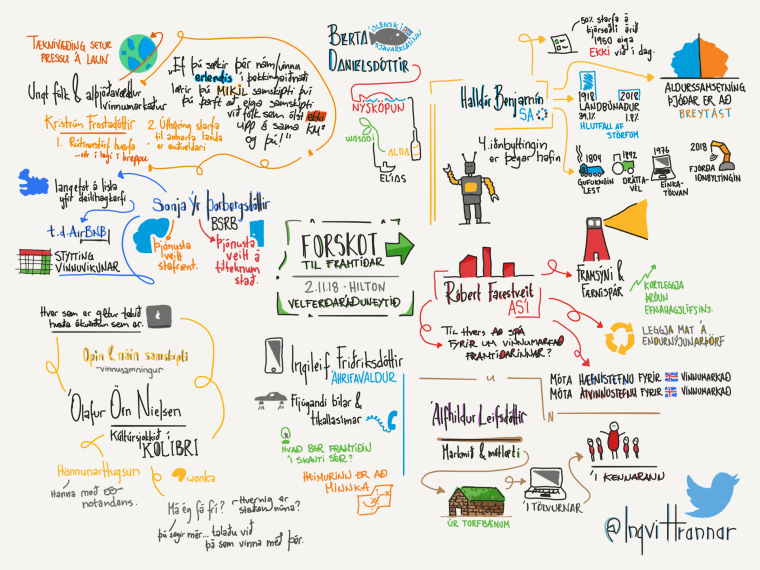 TÆKNIVÆÐING SETUR
PRESSU Á LAUN
Ungt folk & alþjóðavæddur
vinnumarkaður
Kristrún Frostadóttir
1. Rútínustörf hverfa
2. Úthýsing starfa
til annarra landa
er auðveldari
"Ef þú sækir þér nám/vinnu
erlendis í þekkingariðnaði
lærir þú MIKIL samskipti því
þú þarft að eiga samskipti
við folk sem ólst ekki
upp á sama
og þú!"
BERTA
DANIELSDÓTTIR
ÍSLENSKI
SJÁVARKLASINN
NÝSKÖPUN
WASABI
ALDA
ELÍAS
50% starfa á
kjörseðli árið
1960 eiga
EKKI við í dag.
Halldór Benjamín
SA
1918 2018
LANDBÚNAÐUR
39.1% 1.8%
HLUTFALL AF
STÖRFUM
ALDURSSAMSETNING
ÞJÓÐAR ER AÐ
BREYTAST
4. iðnbyltingin
er þegar hafin
1804
GUFUKNÚIN
LEST
1892
DRÁTTA-
VÉL
1976
EINKA-
TÖLVAN
2018
FJÓRÐA
IÐNBYLTINGIN
langefst á lista
yfir deilihagkerfi
t.d. AirBNB
STYTTING
VINNUVIKUNAR
Sonja Ýr Þorbergsdóttir
BSRB
Þjónusta
veitt
stafrænt.
Þjónusta
veitt á
tilteknum
stað.
FORSKOT
TIL FRAMTÍÐAR
2.11.18 - HILTON
VELFERÐARÁÐUNEYTIÐ
Róbert Farestveit
ASÍ
Til Hvers AÐ SPÁ
FYRIR UM VINNUMARKAÐ
FRAMTÍÐARINNAR?
FRAMSÝNI &
FÆRNISPÁR
KORTLEGGJA
ÞRÓUN
EFNAHAGSLÍFSINS.
LEGGJA MAT Á
ENDURNÝJUNARÞÖRF
MÓTA HÆFNISTEFNU FYRIR VINNUMARKAÐ
MÓTA ATVINNUSTEFNU FYRIR VINNUMARKAÐ
Hver sem er getur tekið
hvaða ákvörðun sem er.
Opin & náin samskipti
- vinnusamningur
Ólafur Örn Nielsen
Kúltúrsjokkið í
KOLIBRI
HönnunarHugsun
Hanna með
notandans.
wonka
Má ég fá frí?
- Hvernig er
staðan núna?
þú segir mér... talaðu við
þá sem vinna með þér.
Ingileif Friðriksdóttir
ÁHRIFAVALDUR
Fljúgandi bílar &
tikallasímar
HVAÐ BER FRAMTÍÐIN
Í SKAUTI SÉR?
HEIMURINN ER AÐ
MINNKA
Álfhildur Leifsdóttir
Markmið & mætleti
ÚR TORFBÆNUM
Í TÖLVURNAR
Í KENNARANN
@IngviHrannar